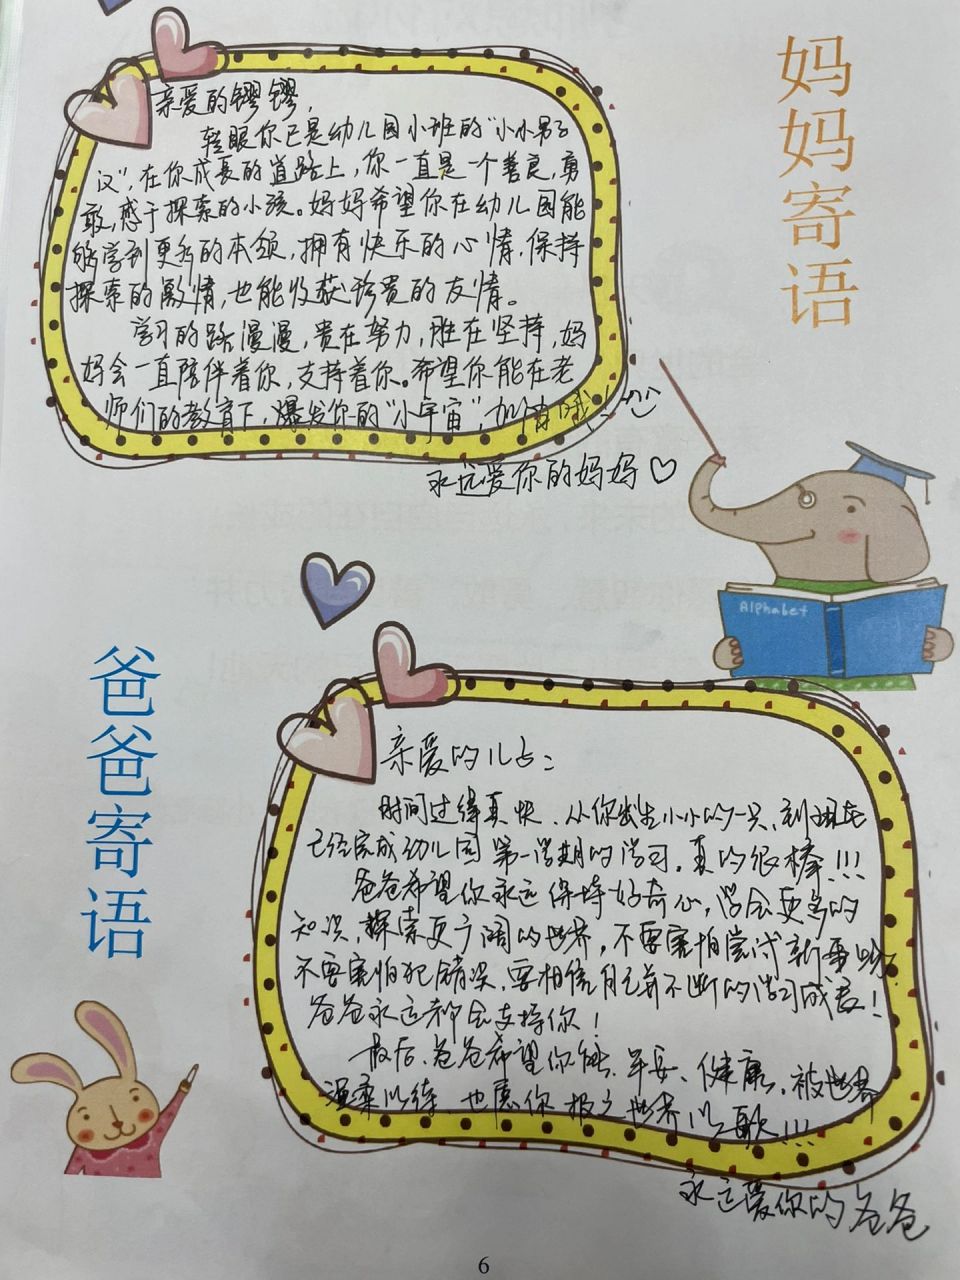 妈妈寄语
亲爱的镠镠，
转眼你已是幼儿园小班的“小小男子
汉”，在你成长的道路上，你一直是一个善良，勇
敢，感于探索的小孩。妈妈希望你在幼儿园能
够学到更多的本领，拥有快乐的心情，保持
探索的激情，也能收获珍贵的友情。
学习的路漫漫，贵在努力，胜在坚持，妈
妈会一直陪伴着你，支持着你。希望你能在老
师们的教育下，爆发你的“小宇宙”，加油哦！
永远爱你的妈妈♡
Alphabet
爸爸寄语
亲爱的儿子：
时间过得真快，从你出生小小的一只，到现在
已经完成幼儿园第一学期的学习，真的很棒!!!
爸爸希望你永远保持好奇心，学会更多的
知识，探索更广阔的世界，不要害怕尝试新事物，
不要害怕犯错误，要相信自己并不断的学习成长！
爸爸永远都会支持你！
最后，爸爸希望你能平安、健康，被世界
温柔以待，也愿你报之世界以歌!!!
永远爱你的爸爸
6